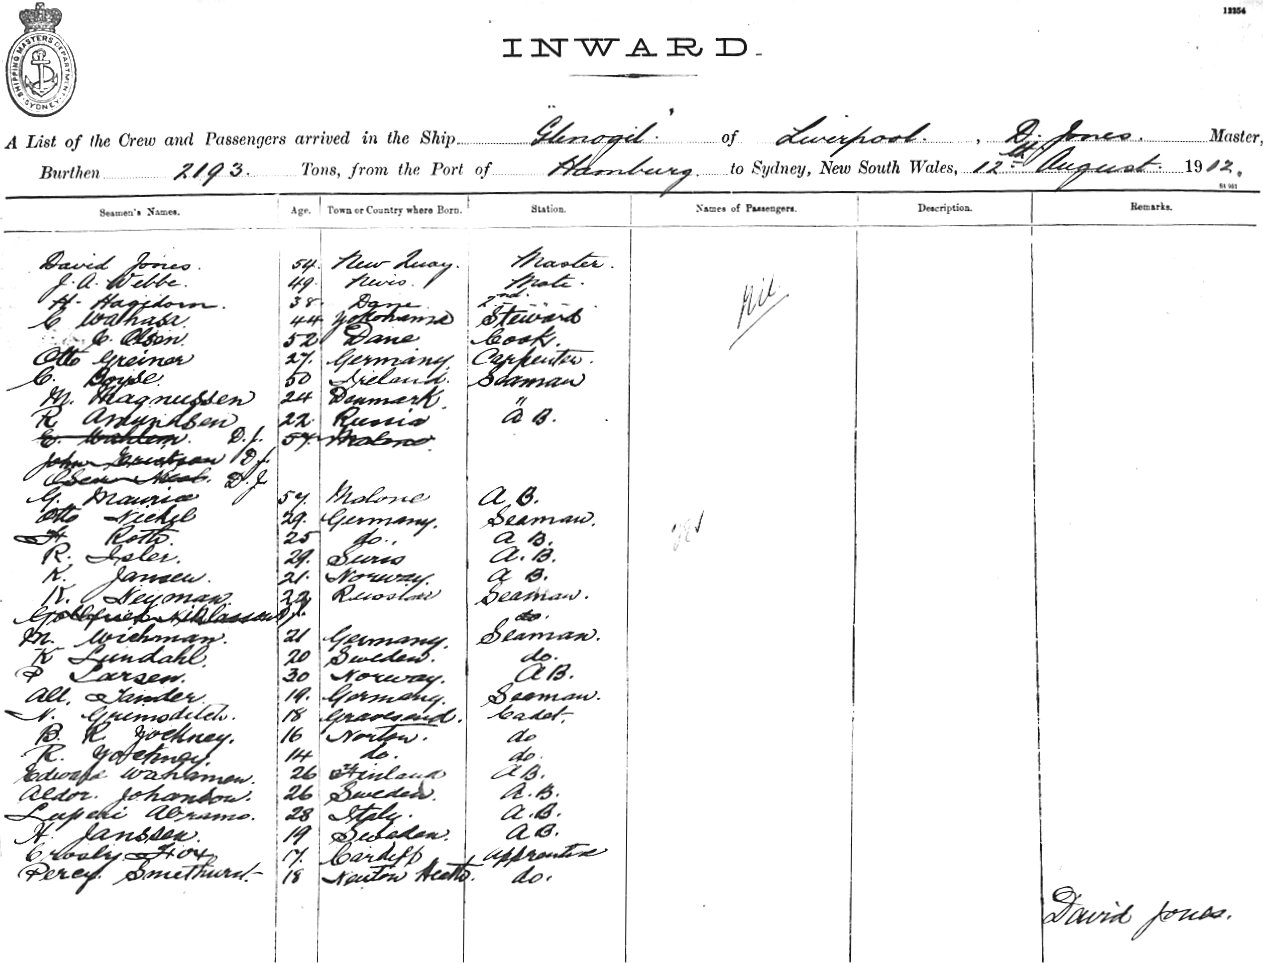 12254
SHIPPING MASTERS DEPARTMENT SYDNEY
INWARD.
A List of the Crew and Passengers arrived in the Ship "Glenogil" of Liverpool, D. Jones. Master,
Burthen 2193. Tons, from the Port of Hamburg to Sydney, New South Wales, 12th August 1912.
Seamen's Names. Age. Town or Country where Born. Station. Names of Passengers. Description. Remarks.
David Jones. 54. New Quay. Master.
J. A. Webbe. 49. Nevis. Mate.
H. Hagedorn. 38. Dane 2nd
C 44 Yokohama Steward
C Olsen. 52 Dane Cook.
Nil
Otto Greiner 27 Germany Carpenter.
C. Boyse 50 Ireland. Seaman
M. Magnussen 24 Denmark "
R Amundsen 22 Russia A B.
D.J. 57
John D.J.
Olsen D.J
G. Maurice 57 Malone A B.
Otto Nickel 29. Germany. Seaman.
H Rotts. 25 do. A B.
R. Isler. 29. Swiss A. B.
K. Jansen. 21. Norway. A B.
K. Neyman 22 Russian Seaman.
do.
M. Wichman. 21 Germany. Seaman.
K Lundahl. 20 Sweden. do.
P Larsen. 30 Norway. A B.
Alf. Tander 19. Germany. Seaman.
N. Grimsditch. 18 Gravesend. Cadet.
B. R. Yockney. 16 Norton. do
R. Yockney. 14 do. do.
Edward Wahlman. 26 Finland A B.
Aldor. Johanson. 26 Sweden. A. B.
Luperi Abramo. 28 Italy. A. B.
H. Janssen. 19 Sweden. A B.
Crosby Fox 17. Cardiff Apprentice
Percy Smethurst 18 Newton Heath. do.
David Jones.